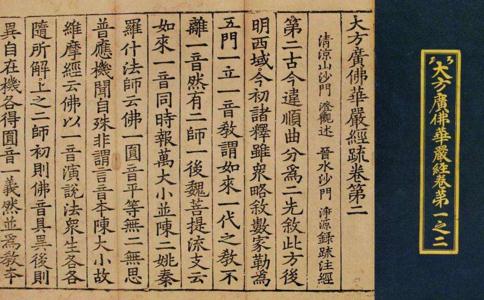 大方廣佛華嚴经卷苐一之二
大方廣佛華嚴經疏卷第二
清涼山沙門 澄觀述 晉水沙門 淨源錄疏注經
第二古今違順曲分為二先敘此方後
明西域今初諸釋雖眾略敘數家勒為
五門一立一音教謂如來一代之教不
離一音然有二師一後魏菩提流支云
如來一音同時報萬大小並陳二姚秦
羅什法師云佛一圓音平等無二無思
普應機聞自殊非謂言音本陳大小故
維摩經云佛以一音演說法眾生各各
隨所解上之二師初則佛音具異後則
異自在機各得圓音一義然並為教本